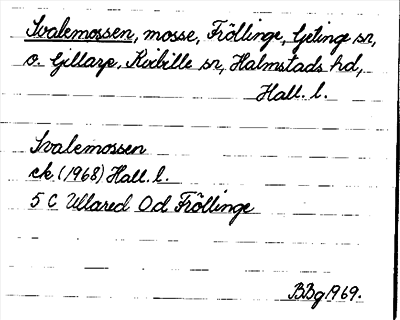 Svalemossen, mosse, Fröllinge, Getinge sn,
o. Gillarp, Kvibille sn, Halmstads hd,
Hall. l.
Svalemossen
ek. (1968) Hall. l.
5 C Ullared 0d Fröllinge
BBg 1969.